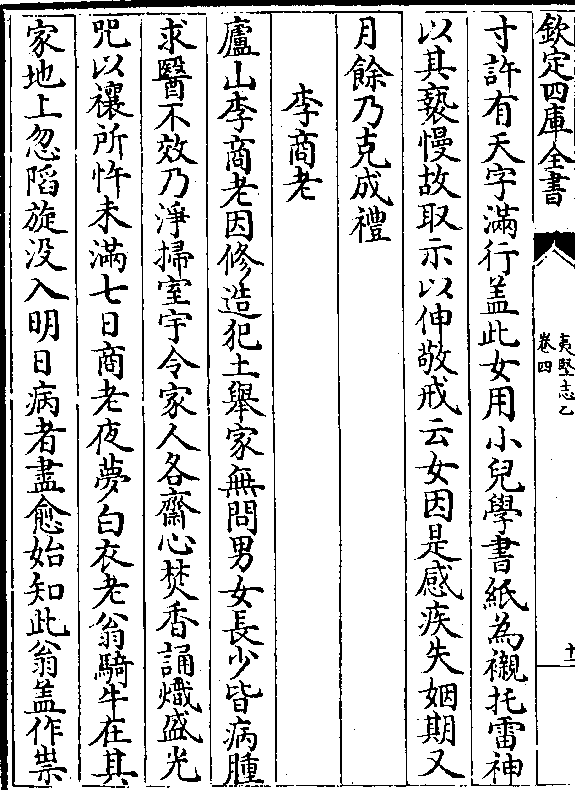 欽定四庫全書
夷堅志乙
卷四
十一
寸許有天字滿行盖此女用小兒學書紙為襯托雷神
以其褻慢故取示以伸敬戒云女因是感疾失姻期又
月餘乃克成禮
李商老
廬山李商老因修造犯土舉家無問男女長少皆病腫
求醫不效乃淨掃室宇令家人各齋心焚香誦熾盛光
咒以禳所忤未滿七日商老夜夢白衣老翁騎牛在其
家地上忽䧟旋没入明日病者盡愈始知此翁盖作祟